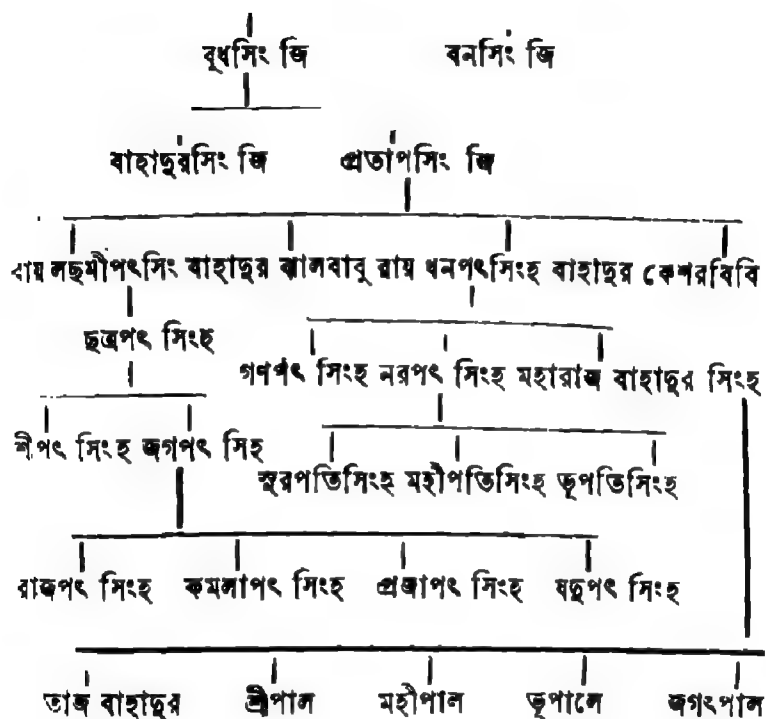 বুধসিং জি বনসিং জি
বাহাদুরসিং জি প্রতাপসিং জি
রায় লছমীপৎসিং বাহাদুর লালবাবু রায় ধনপৎসিংহ বাহাদুর কেশরবিবি
ছত্রপৎ সিংহ
গণপৎ সিংহ নরপৎ সিংহ মহারাজ বাহাদুর সিংহ
শ্রীপৎ সিংহ জগপৎ সিহ
সুরপতিসিংহ মহীপতিসিংহ ভূপতিসিংহ
রাজপৎ সিংহ কমলাপৎ সিংহ প্রজাপৎ সিংহ যদুপৎ সিংহ
তাজ বাহাদুর শ্রীপাল মহীপাল ভূপালে জগৎপাল